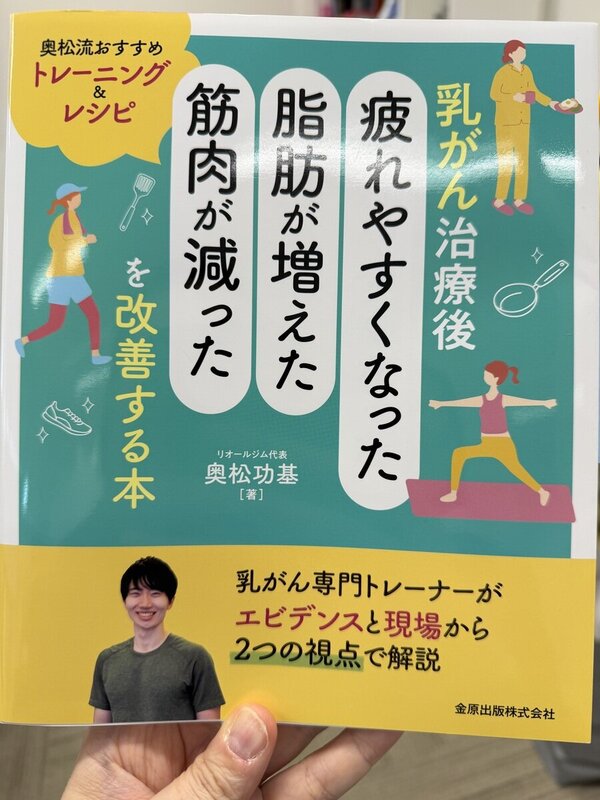 奥松流おすすめ
トレーニング
&
レシピ
乳がん治療後
疲れやすくなった
脂肪が増えた
筋肉が減った
を改善する本
リオールジム代表
奥松功基
[著]
乳がん専門トレーナーが
エビデンスと現場から
2つの視点で解説
金原出版株式会社